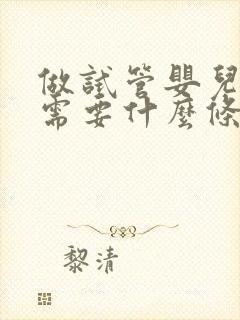 做試管嬰兒
需要什麼條
黎清